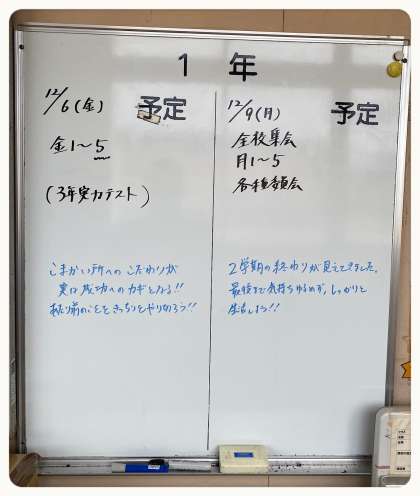 1 年
12/6(金) 予定
金1~5
(3年実力テスト)
こまかい所へのこだわりが
実は成功へのカギとなる!!
当り前のことをきっちりとやり切ろう!!
12/9(月) 予定
全校集会
月1~5
各種委員会
2学期の終わりが見えてきました。
最後まで気持ちゆるめず、しっかりと
生活しよう!!